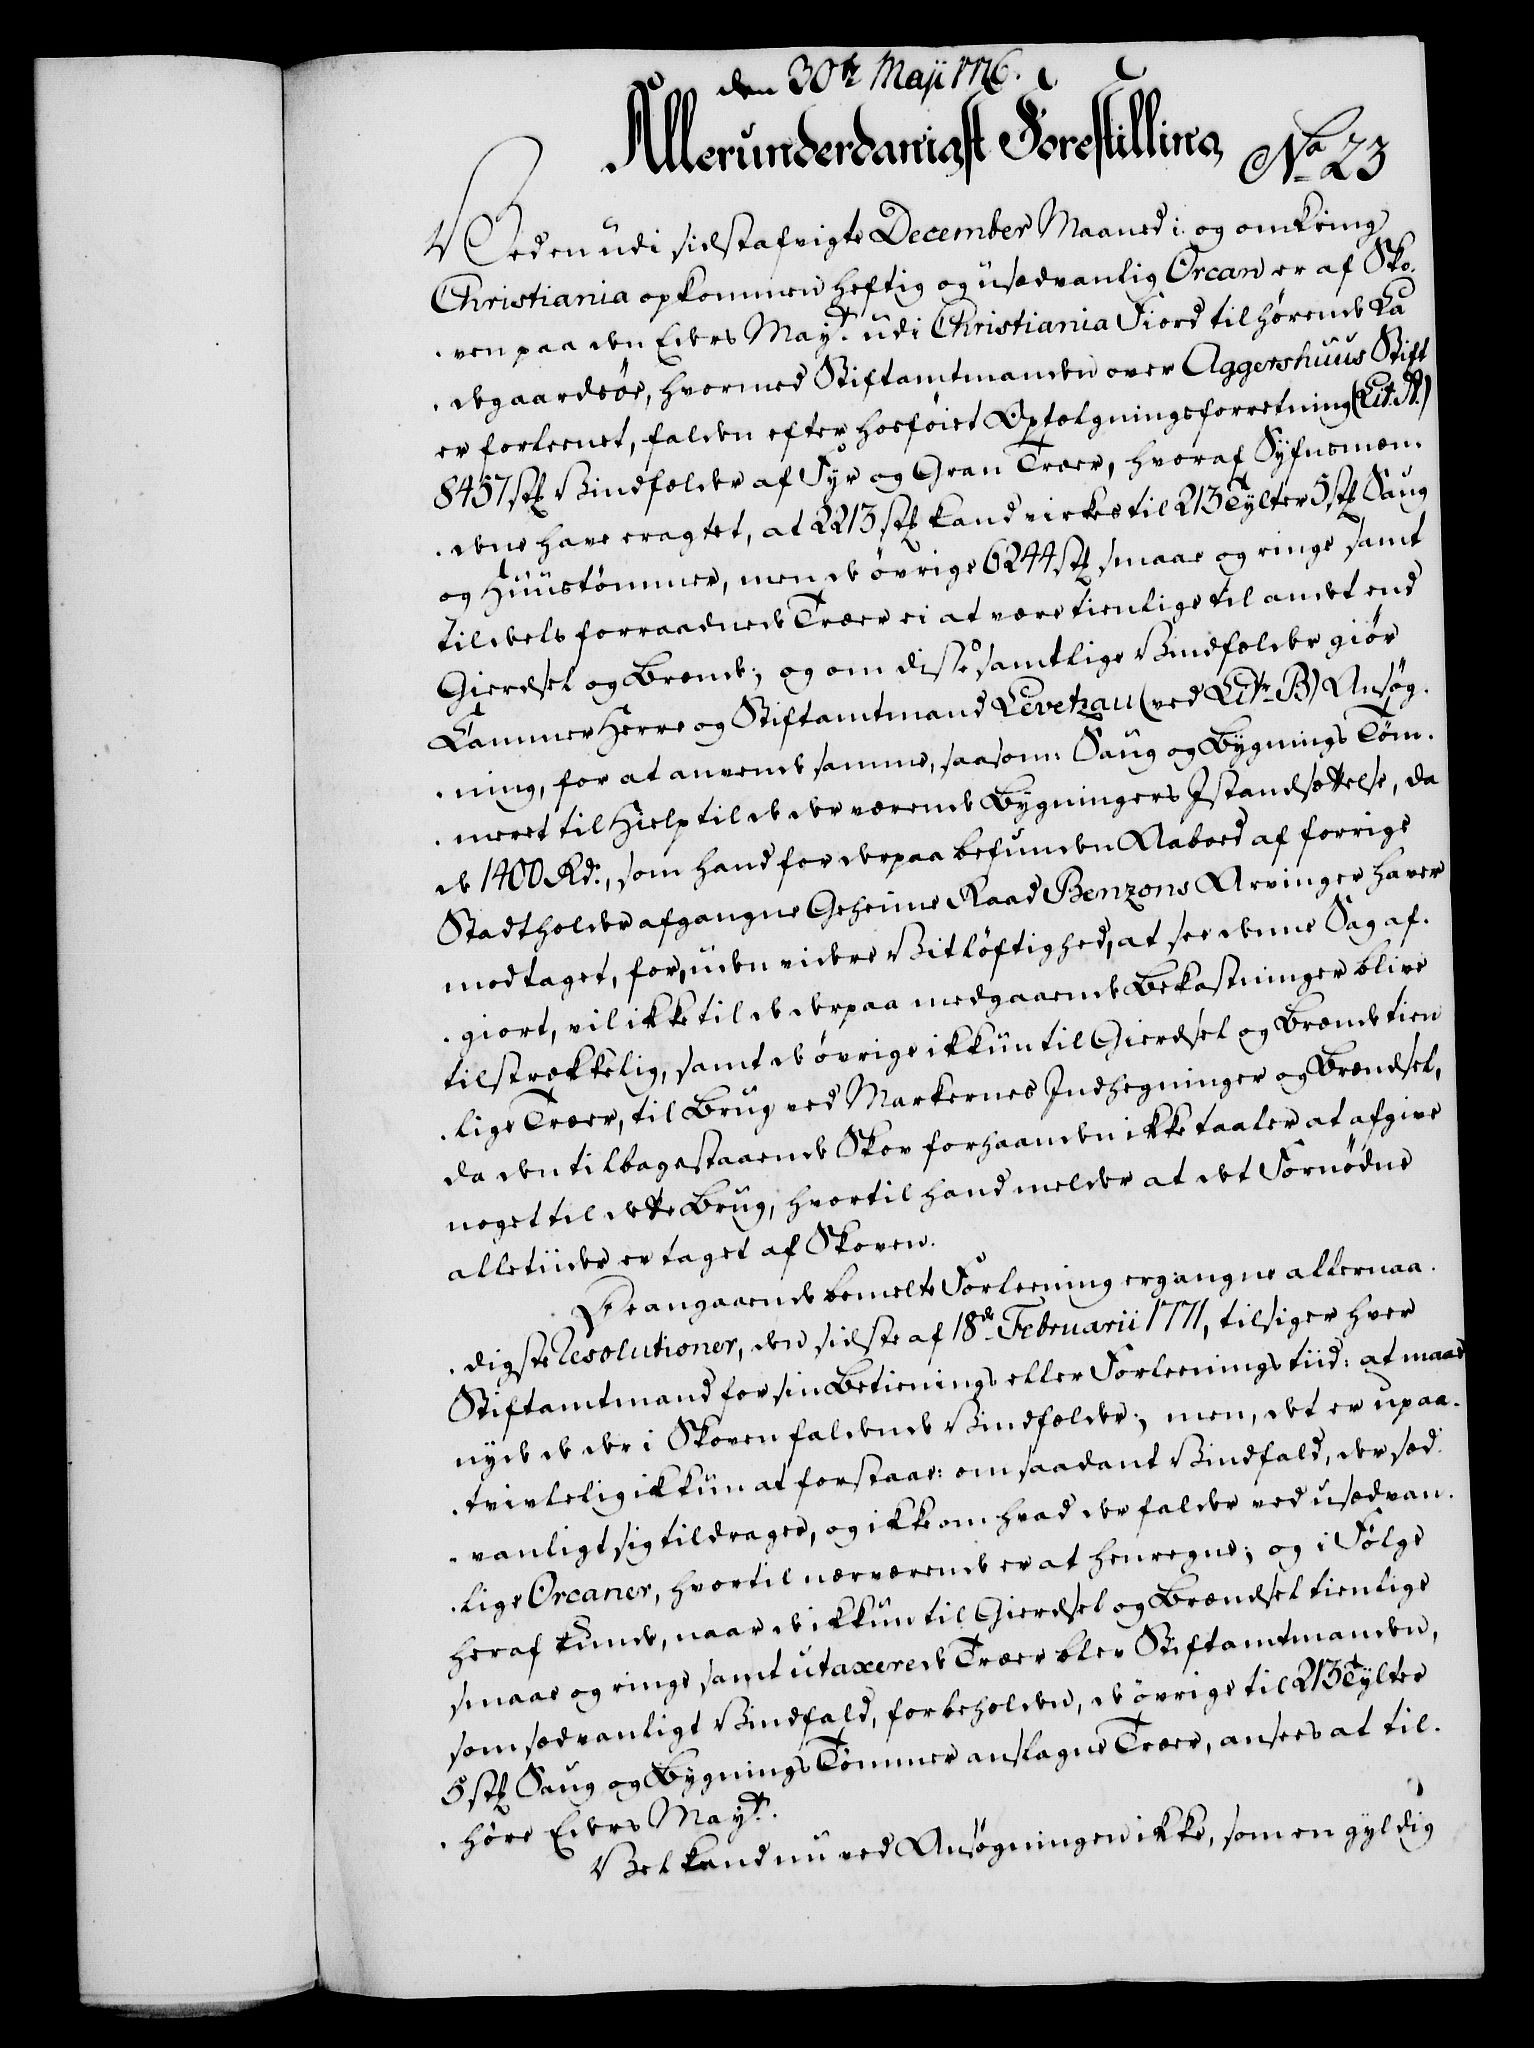 den 30te Maji 1776.
Allerunderdanigst Forestilling
No 23
Ved en udi sidstafvigte December Maaned i og omkring
Christiania opkommen heftig og usædvanlig Orcan er af Sko-
-ven paa den Eders Mayt. udi Christiania Fiord tilhørende La
-degaardsøe, hvormed Stiftamtmanden over Aggershuus Stift
er forleenet, falden efter hosføiet Optælgningsforretning (Lit. A.)
8457 stk Vindfælder af Fyr og Gran Træer, hvoraf Syfnsmæn-
-dene have eragtet, at 2213 stk kand virkes til 213 Tylter 5 stk Saug
og Huustømmer, men de øvrige 6244 stk smaae og ringe samt
tildels forraadnede Træer ei at være tienlige til andet end
Gierdsel og Brænde; og om disse samtlige Vindfælder giør
Kammer Herre og Stiftamtmand Levetzau (ved Litr. B) Ansøg-
-ning, for at anvende samme, saasom Saug og Bygnings Tøm-
-meret til Hielp til de der værende Bygningers Istandsættelse, da
de 1400 Rd., som hand for derpaa befunden Aaboed af forrige
Stadtholder afgangne Geheime Raad Benzons Arvinger haver
modtaget, for, uden videre Vitløftighed, at see denne Sag af-
-giort, vil ikke til de derpaa medgaaende Bekostninger blive
tilstrækkelig, samt de øvrige ikkun til Gierdsel og Brænde tien
-lige Træer, til Brug ved Markernes Indhegninger og Brændsel,
da den tilbagestaaende Skov forhaanden ikke taaler at afgive
noget til dette Brug, hvortil hand melder at det Fornødne
alletiider er taget af Skoven.
De angaaende bemelte Forleening ergangne allernaa-
-digste Resolutioner, den sidste af 18de Februarii 1771, tilsiger hver
Stiftamtmand for sin Betienings eller Forleenings tiid: at maae
nyde de der i Skoven faldende Vindfælder; men, det er upaa-
-tvivlelig ikkun at forstaae: om saadant Vindfald, der sæd-
-vanligt sig tildrager, og ikke om hvad der falder ved usædvan-
-lige Orcaner, hvortil nærværende er at henregne; og i Følge
heraf kunde, naar de ikkun til Gierdsel og Brændsel tienlige
smaae og ringe samt utaxerede Træer blev Stiftamtmanden,
som sædvanligt Vindfald, forbeholden, de øvrige til 213 Tylter
5 stk Saug og Bygnings Tømmer anslagne Træer, ansees at til-
-høre Eders Mayt.
Vel kand nu ved Ansøgningen ikke, som en gyldig